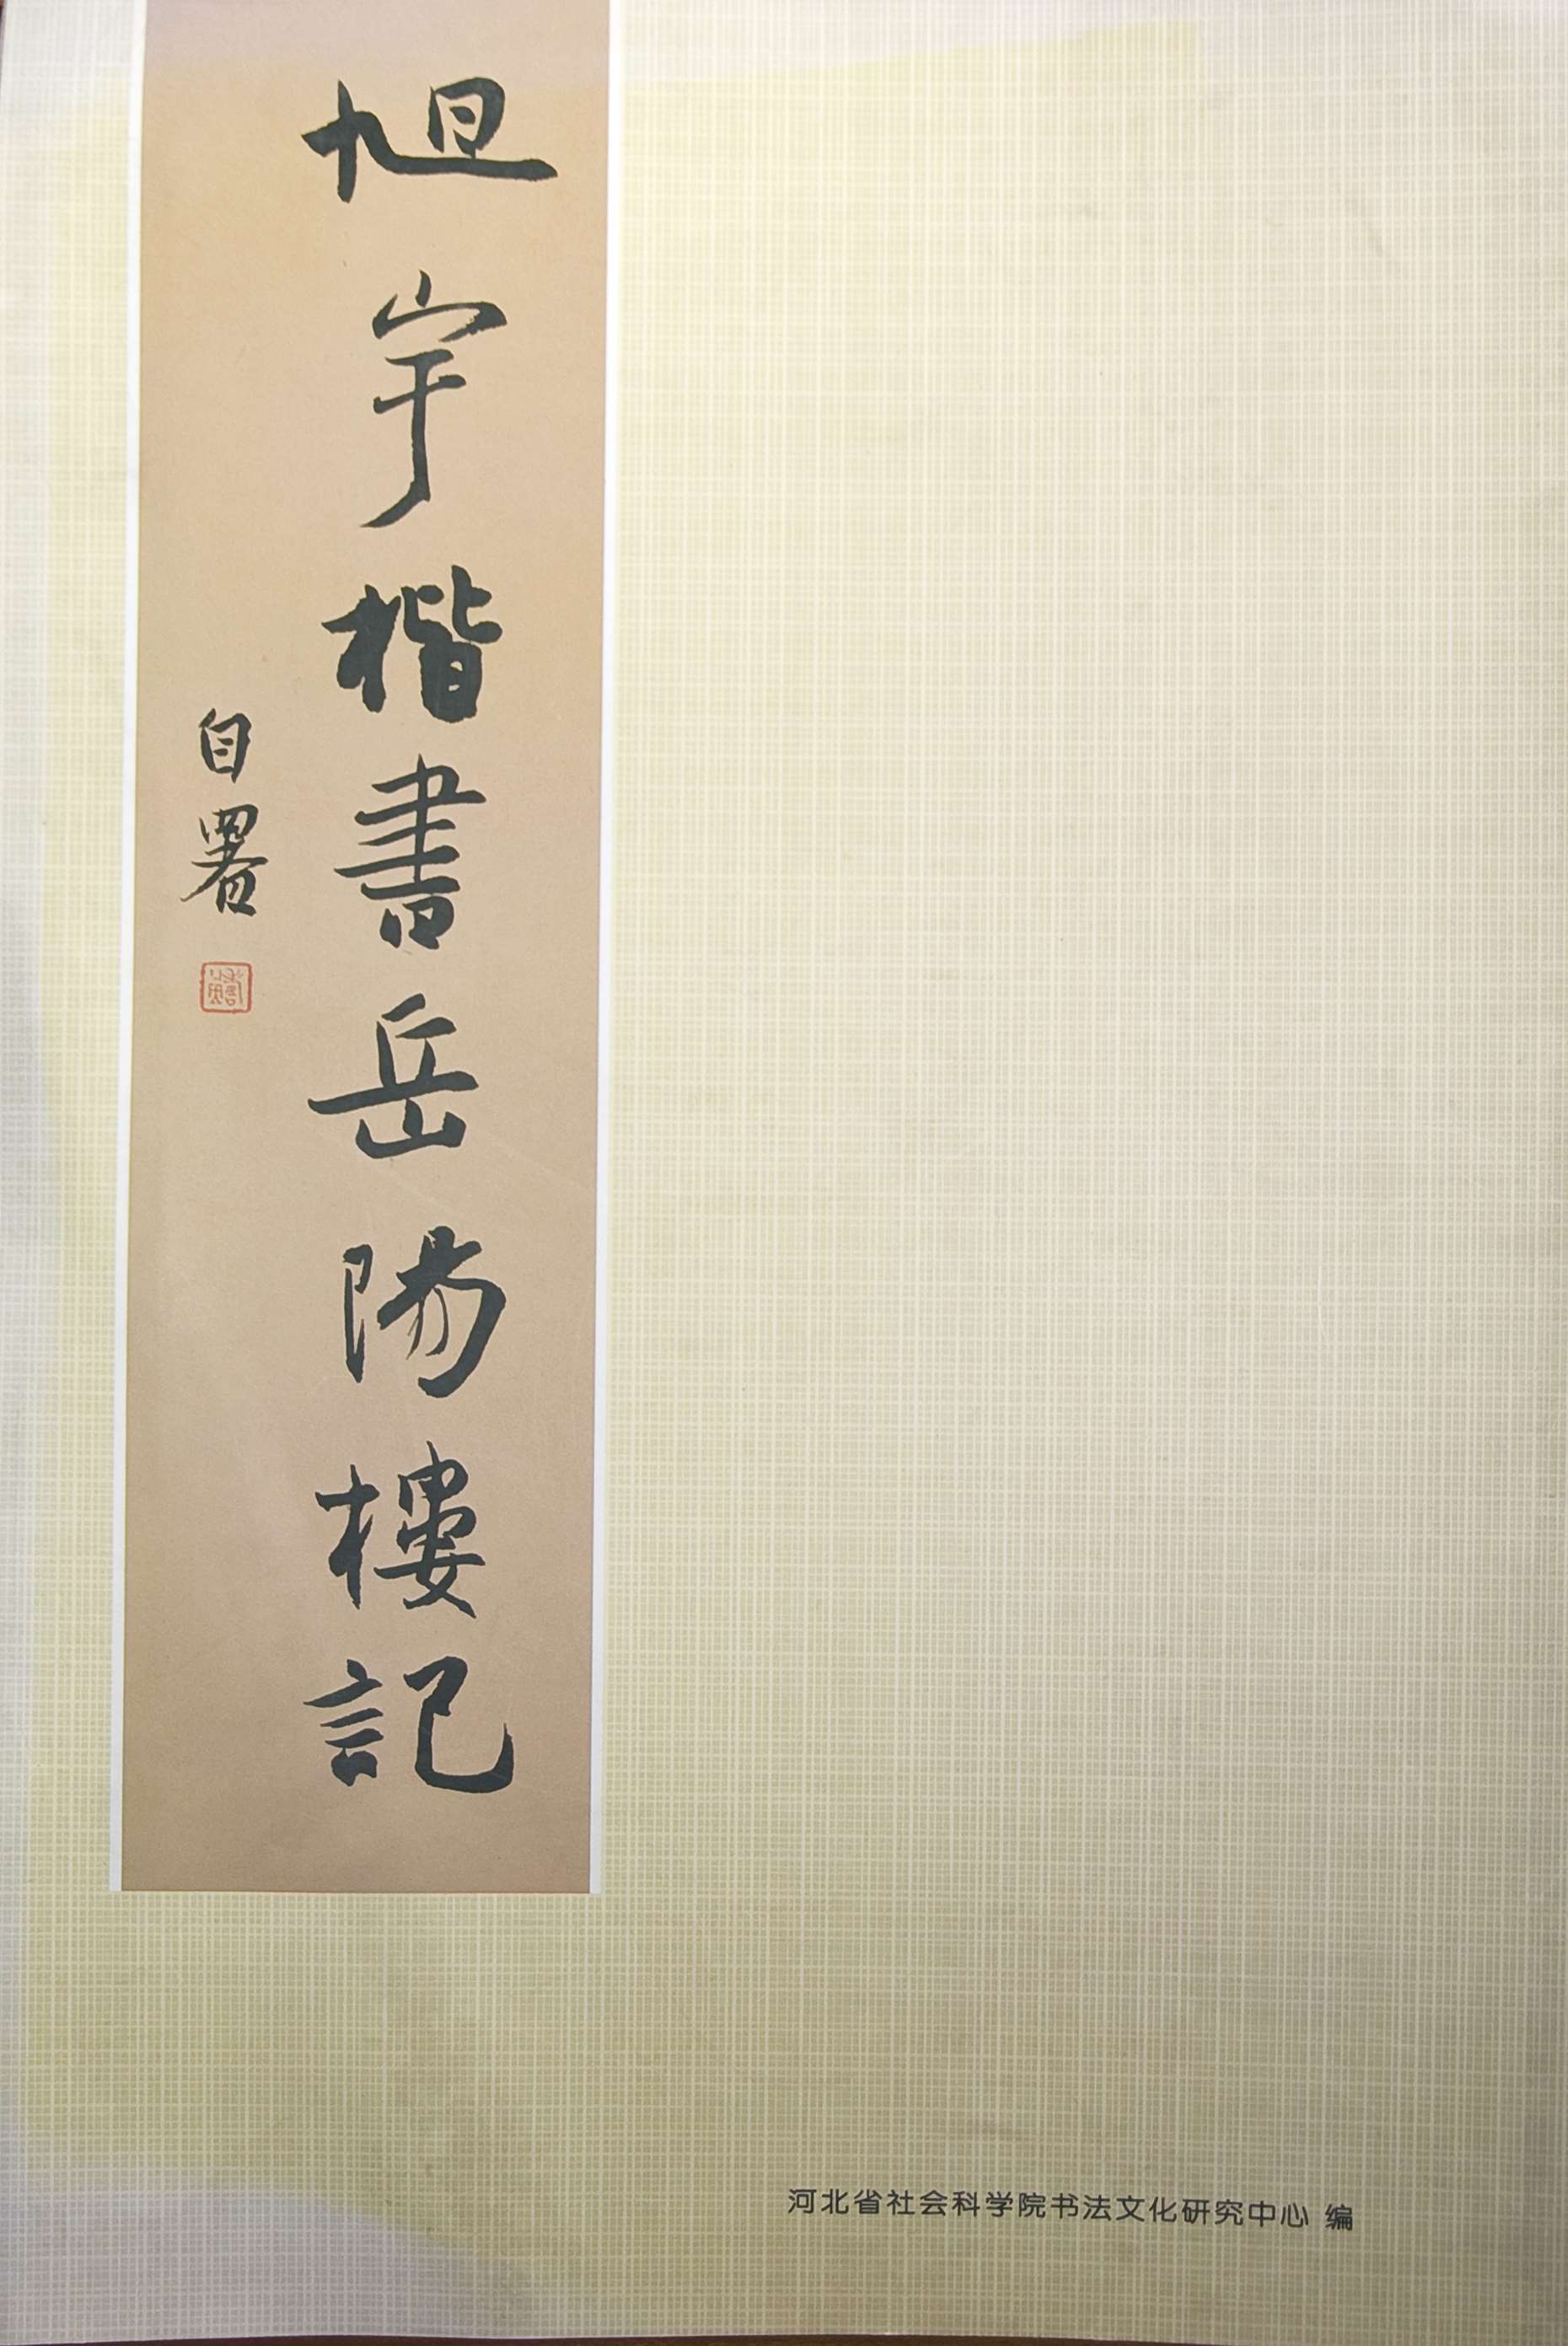 旭宇楷書岳陽樓記
自署
河北省社会科学院书法文化研究中心 编